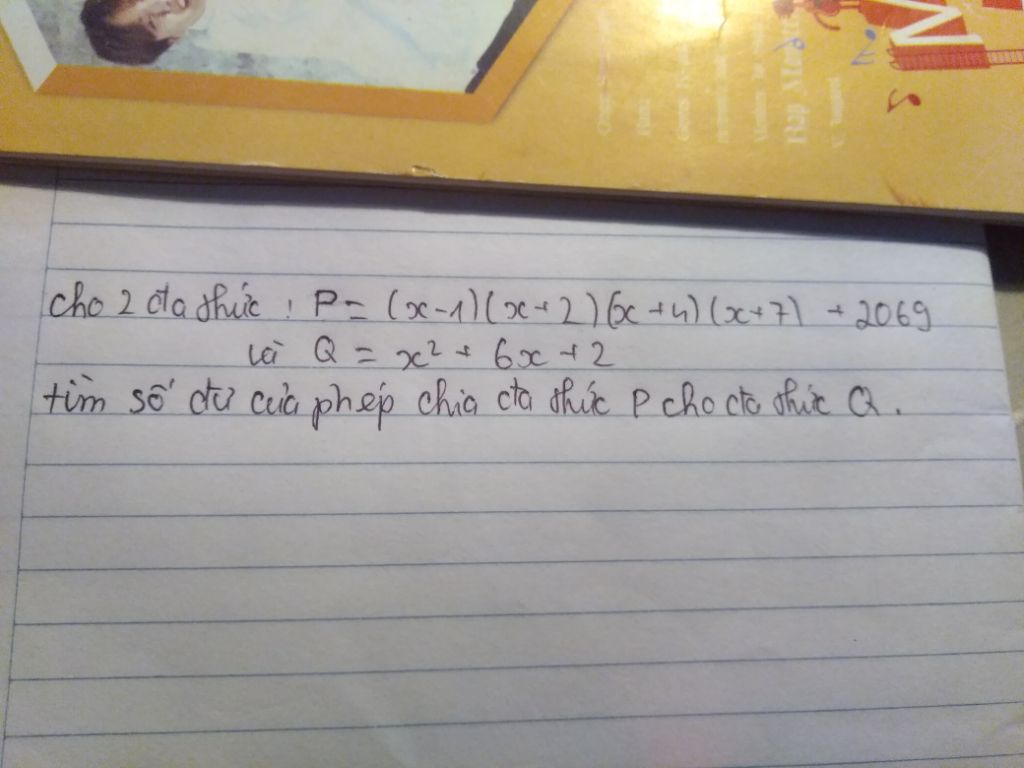 cho 2 đa thức : P = (x-1)(x+2)(x+4)(x+7) + 2069
và Q = x² + 6x + 2
tìm số dư của phép chia đa thức P cho đa thức Q.